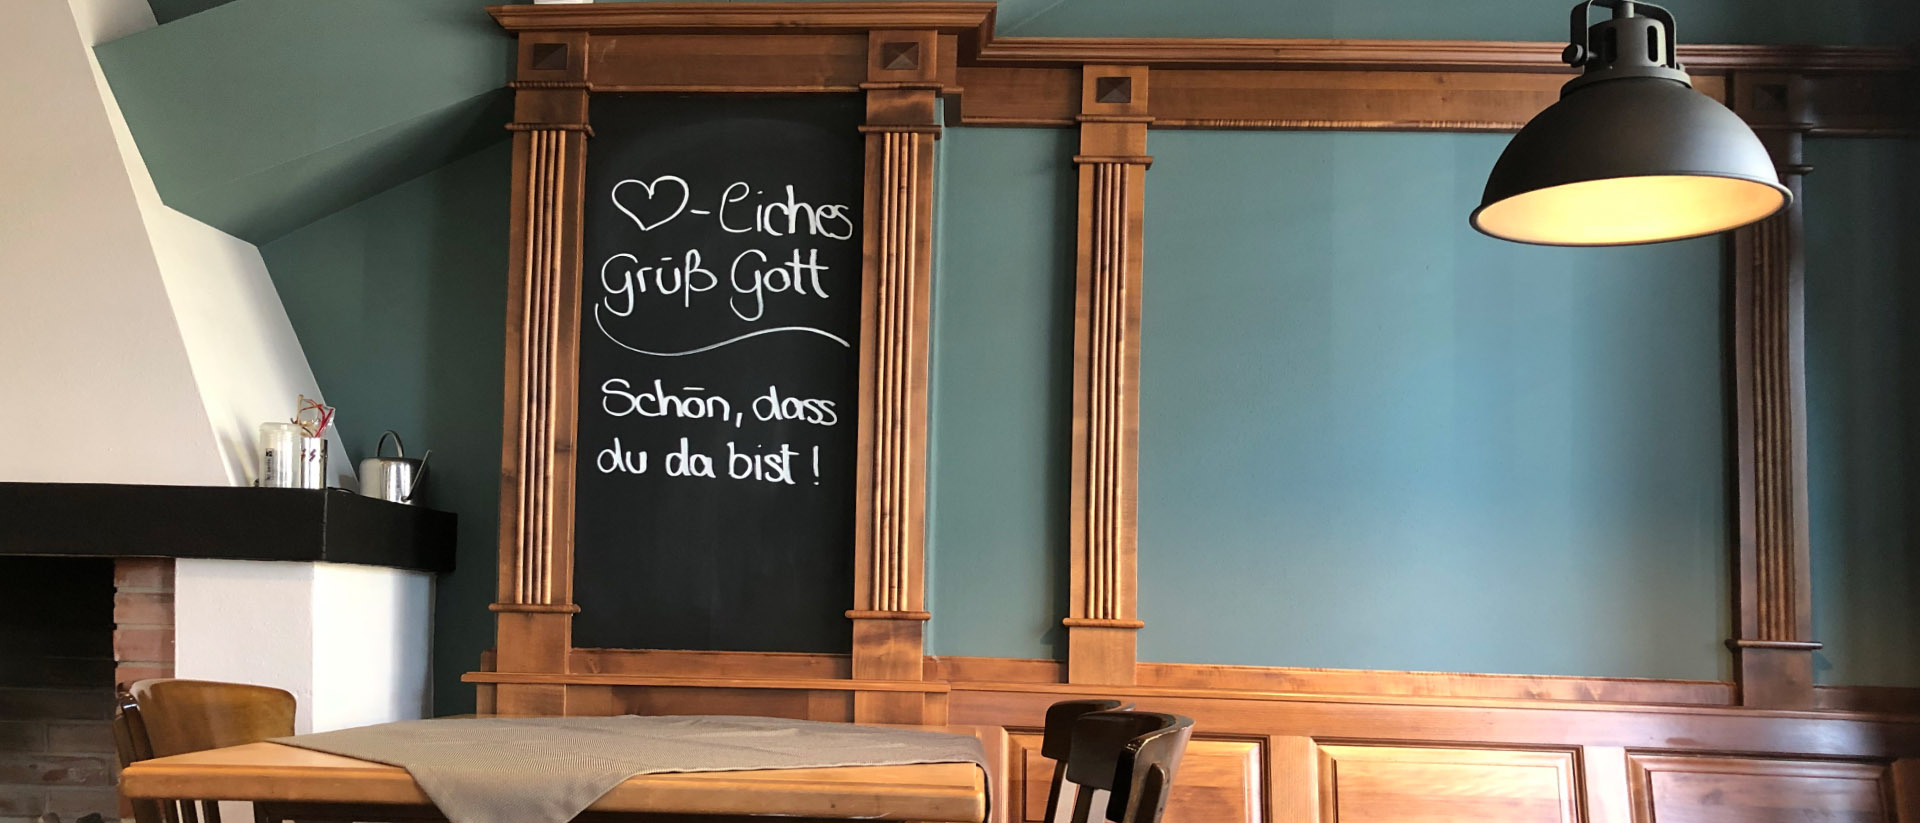 ♡-liches
Grüß Gott
Schön, dass
du da bist!